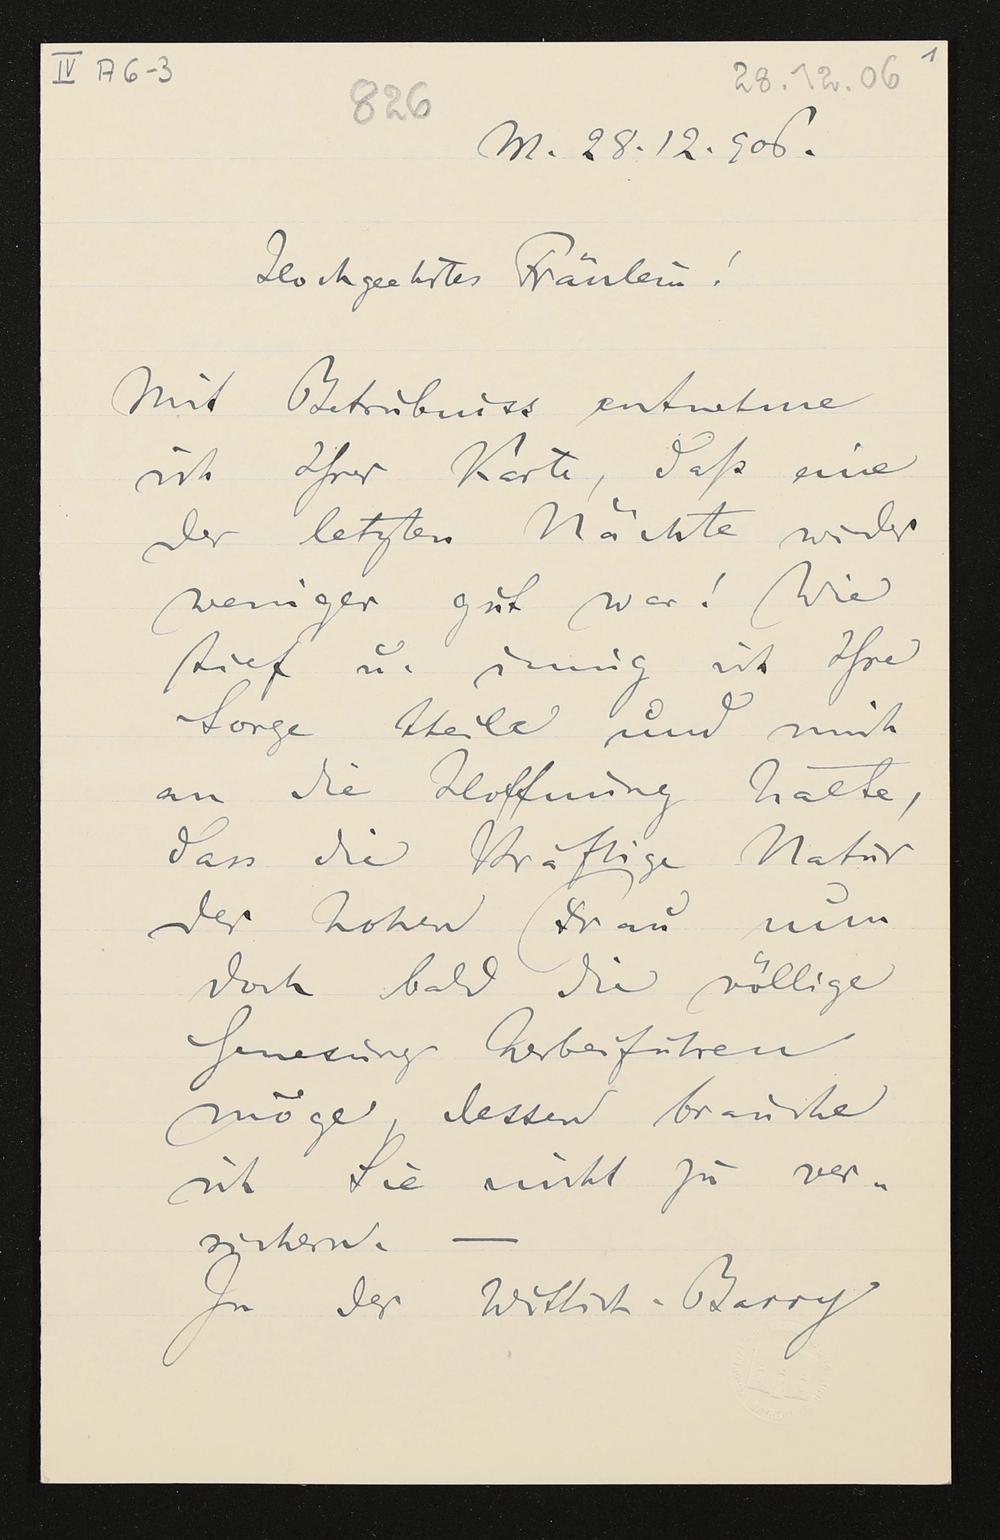 IV A 6-3
826
28.12.06
1
M. 28.12.906.
Hochgeehrtes Fräulein!
Mit Betrübniss entnehme
ich Ihrer Karte, daß eine
der letzten Nächte wieder
weniger gut war! Wie
tief u. innig ich Ihre
Sorge theile und mich
an die Hoffnung halte,
dass die kräftige Natur
der hohen Frau nun
doch bald die völlige
Genesung herbeiführen
möge, dessen brauche
ich Sie nicht zu ver-
sichern. —
In der Wittich-Barry